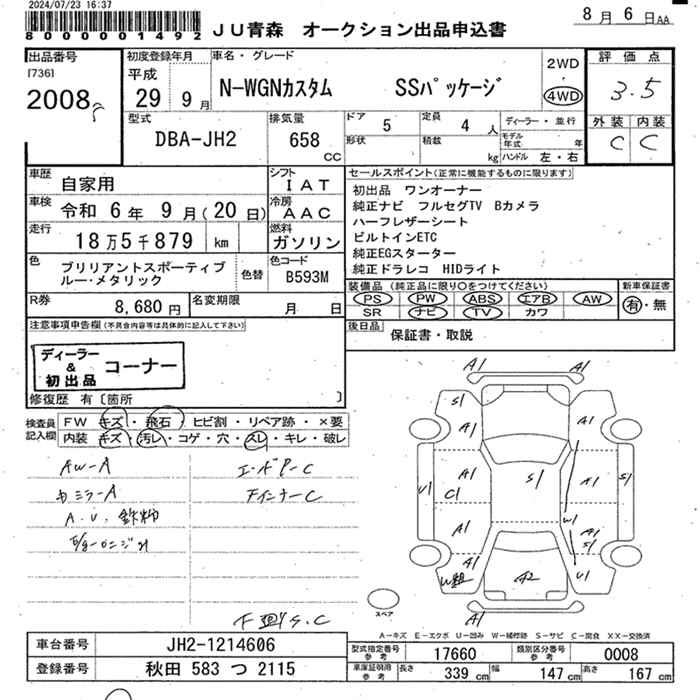 2024/07/23 16:37
8000001492
JU青森 オークション出品申込書
8月 6日AA
出品番号
[736]
2008
初度登録年月
平成
29 9月
車名・グレード
N-WGNカスタム SSパッケージ
2WD
・
4WD
評価点
3.5
外装 内装
C C
型式
DBA-JH2
排気量
658
CC
ドア
5
形状
定員
4人
積載
kg
ディーラー・並行
モデル年式 年
ハンドル 左・右
車歴
自家用
車検 令和 6年 9月(20日)
走行 18万5千879 km
シフト
IAT
冷房
AAC
燃料
ガソリン
色
ブリリアントスポーティブ
ルー・メタリック
色替
色コード
B593M
R券
8,680円
名変期限
月 日
セールスポイント(正常に機能するものに限ります)
初出品 ワンオーナー
純正ナビ フルセグTV Bカメラ
ハーフレザーシート
ビルトインETC
純正EGスターター
純正ドラレコ HIDライト
装備品(純正品に限り○をつけてください)
PS PW ABS エアB AW
SR ナビ TV カワ
新車保証書
有・無
後日品
保証書・取説
注意事項申告欄(不具合内容等は具体的に記入して下さい)
ディーラー
&
初出品
コーナー
修復歴 有〔箇所 〕
検査員
記入欄
FW キズ・飛石・ヒビ割・リペア跡・×要
内装 キズ・汚レ・コゲ・穴・スレ・キレ・破レ
AW-A
カミラーA
A.U.鉄粉
エーボアーC
FインナーC
下廻りS.C
A1
A1
S1
A1
A1
U1
A1
C1
S1
A1
S1
W1
A1
A1
S1
A1
W粗
A2
U1
A1
スペア
A-キズ E-エクボ U-凹み W-補修跡 S-サビ C-腐食 XX-交換済
車台番号
JH2-1214606
登録番号
秋田 583 つ 2115
型式指定番号
参考
17660
類別区分番号
参考
0008
車庫証明用
参考
長さ
339 cm
幅
147 cm
高さ
167 cm